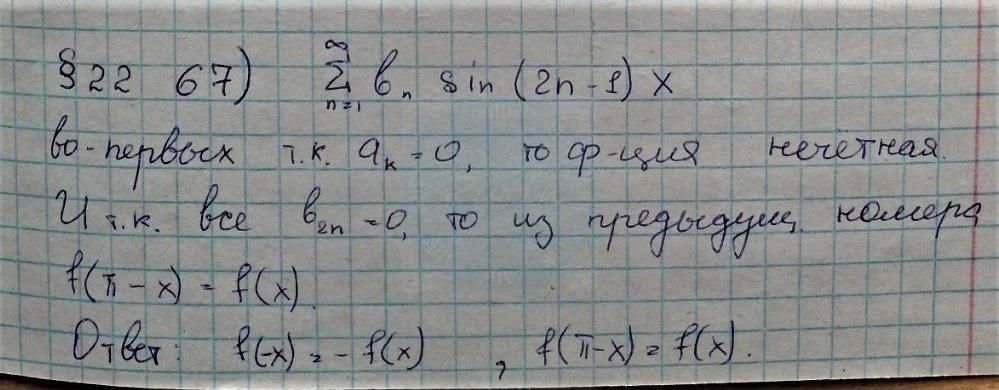 §22 67) ∞ Σ n=1 bn sin (2n-1) x
во-первых т.к. ak=0, то ф-ция нечётная.
И т.к. все b2n=0, то из предыдущ. номера
f(π-x) = f(x).
Ответ: f(-x) = -f(x) , f(π-x) = f(x).